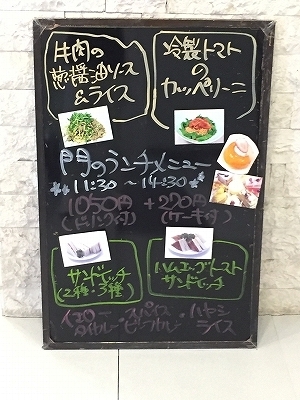 牛肉の
葱醤油ソース
&ライス
冷製トマト
の
カッペリーニ
門のランチメニュー
11:30 ~ 14:30
1050円 + 270円
(ドリンク付) (ケーキ付)
サンドイッチ
(2種・3種)
ハムエッグトースト
サンドイッチ
イエロー スパイス ハヤシ
タイカレー・ビーフカレー ライス